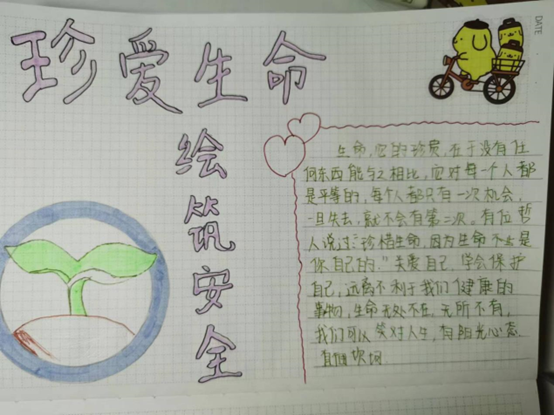 珍爱生命
绘筑安全
DATE
生命,它的珍贵,在于没有任
何东西能与之相比,而对每一个人都
是平等的,每个人都只有一次机会,
一旦失去,就不会有第二次。有位哲
人说过:"珍惜生命,因为生命不只是
你自己的。"关爱自己,学会保护
自己,远离不利于我们健康的
事物,生命无处不在,无所不有,
我们可以笑对人生,有阳光心态
直面坎坷